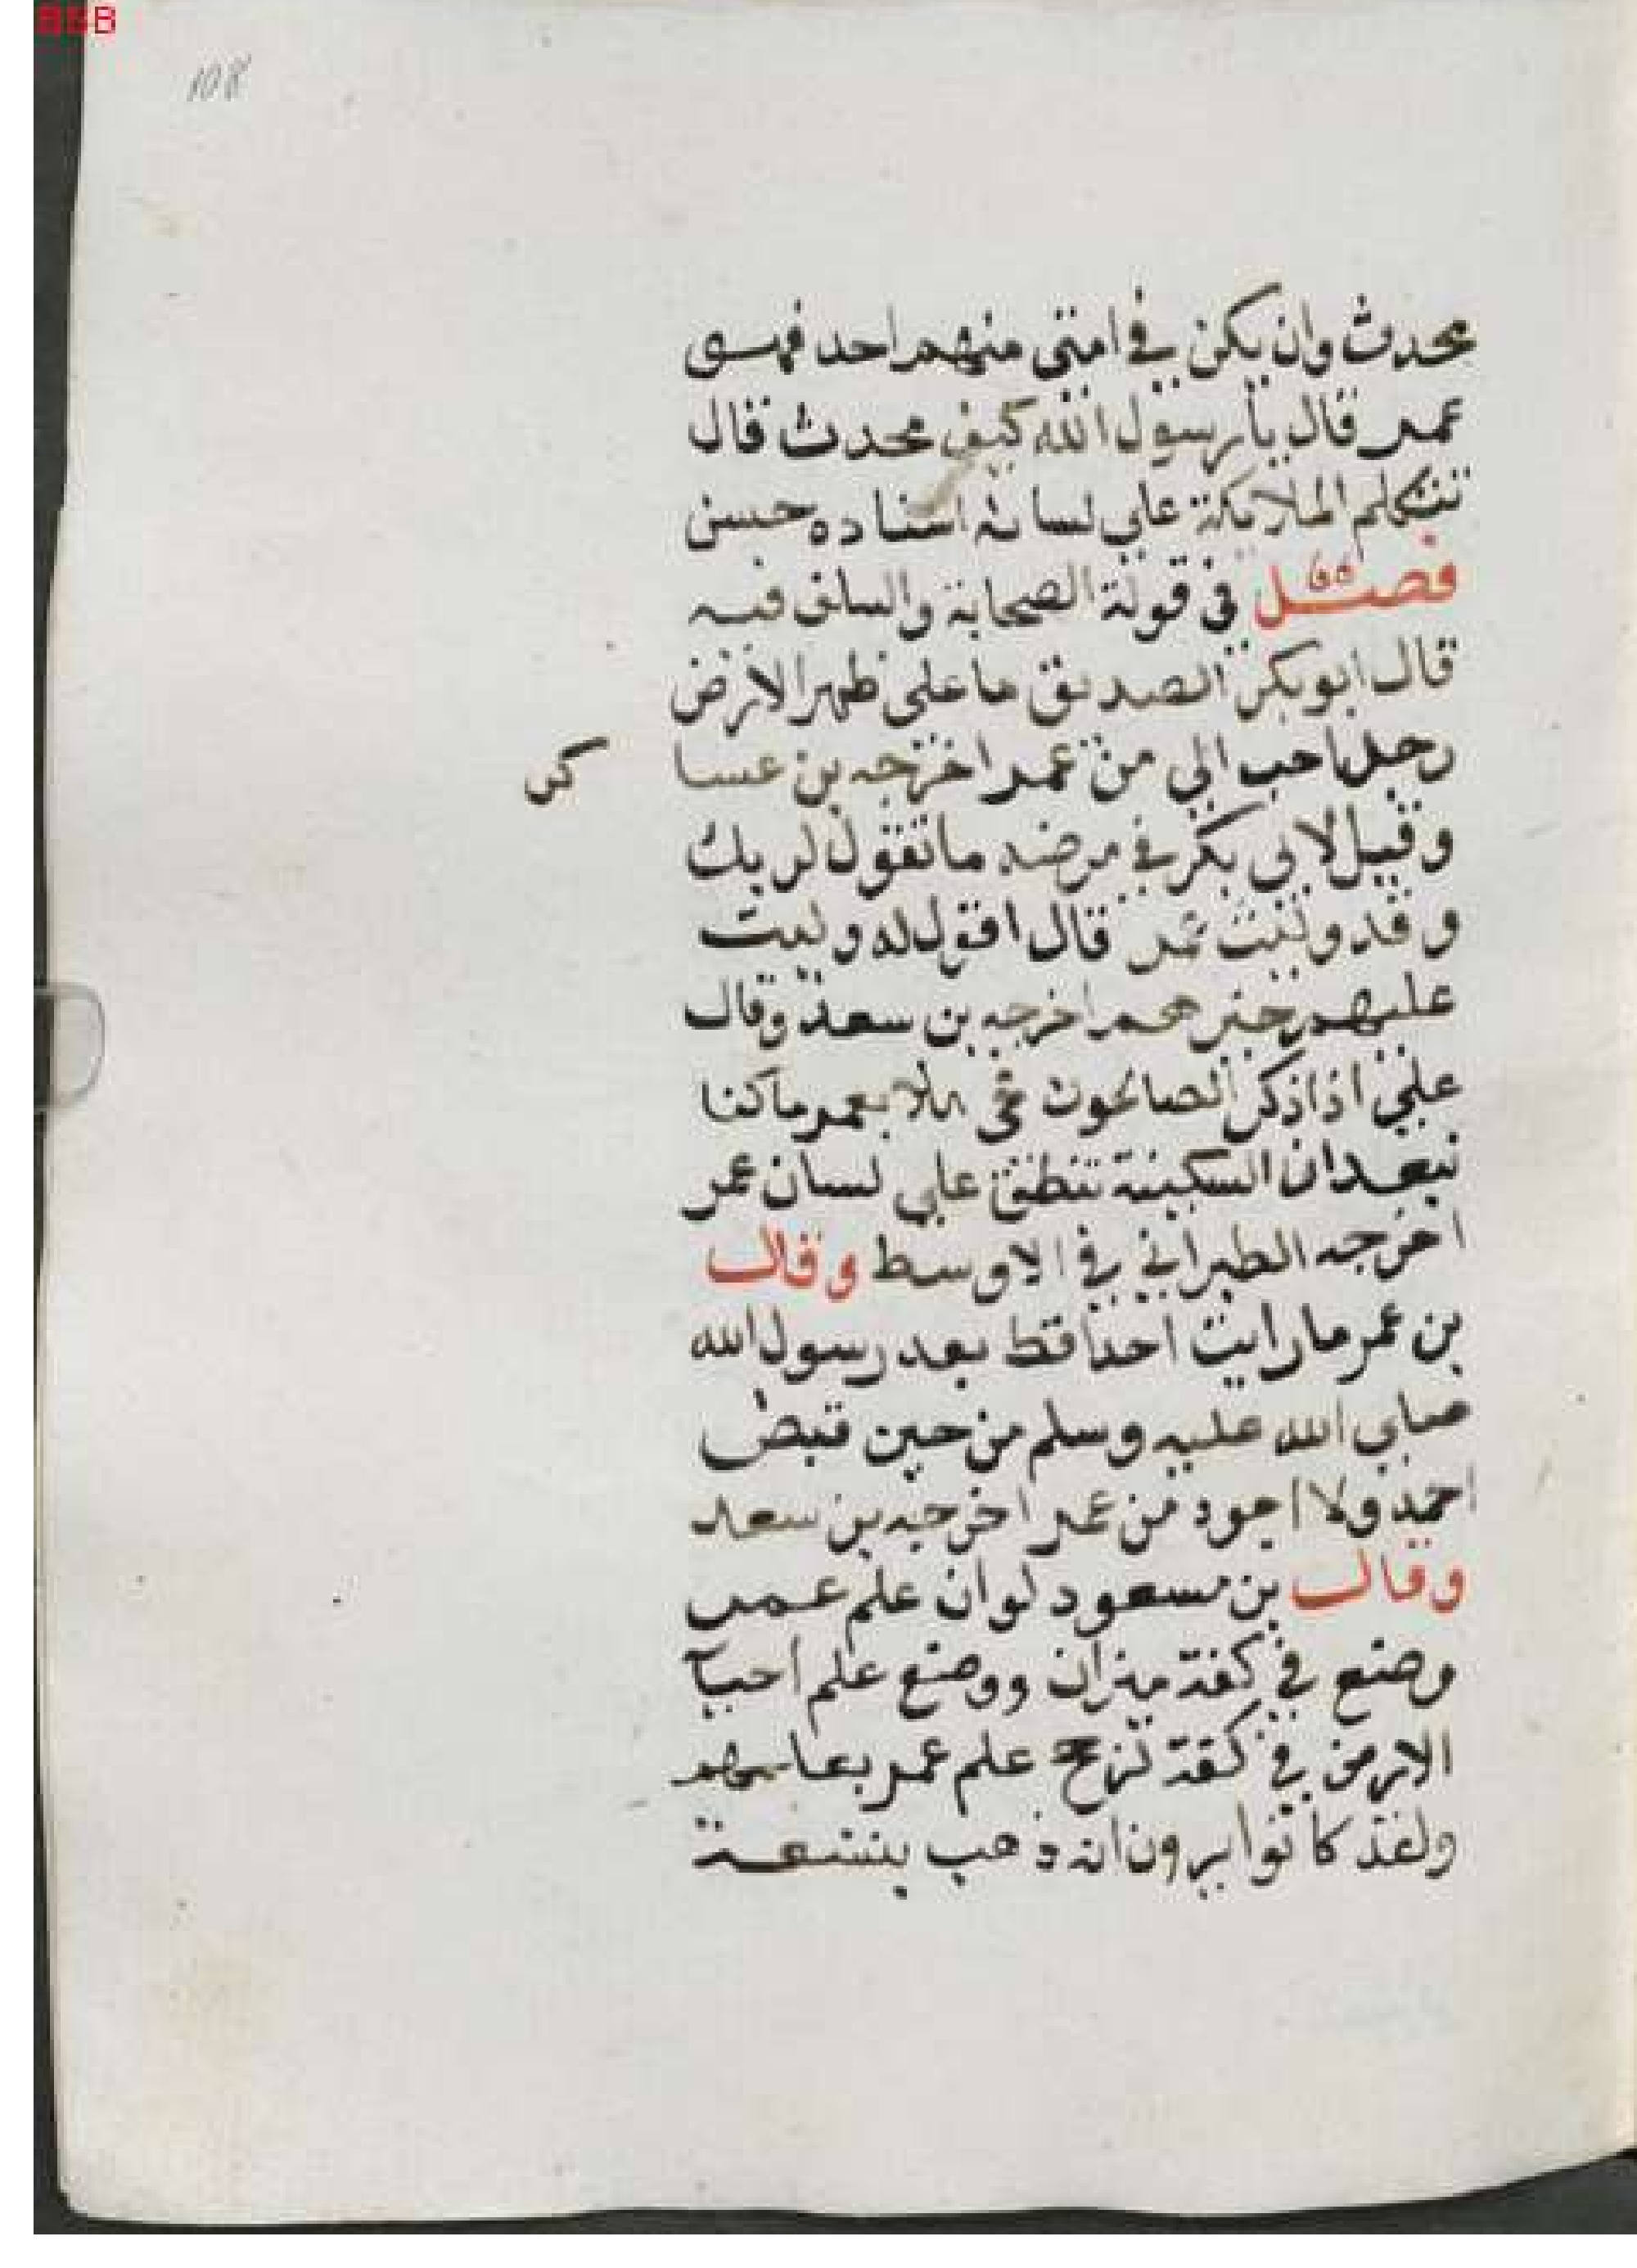 BSB
108
محدث وان يكن في امتى منهم احد فهو
عمر قال يا رسول الله كيف محدث قال
تتكلم الملايكة على لسانه اسناده حسن
فصل في قولة الصحابة والسلف فيه
قال ابو بكر الصديق ما على ظهر الارض
رجل احب الي من عمر اخرجه بن عسا كر
وقيل لابي بكر في مرضه ما تقول لربك
وقد وليت عمر قال اقول له وليت
عليهم خيرهم اخرجه بن سعد وقال
علي اذا ذكر الصالحون فحي هلا بعمر ما كنا
نبعد ان السكينة تنطق علي لسان عمر
اخرجه الطبراني في الاوسط وقال
بن عمر ما رايت احدا قط بعد رسول الله
صلي الله عليه وسلم من حين قبض
احد ولا اجود من عمر اخرجه بن سعد
وقال بن مسعود لو ان علم عمر
وضع في كفة ميزان ووضع علم احيا
الارض في كفة لرجح علم عمر بعلمهم
ولقد كانوا يرون انه ذهب بتسعة